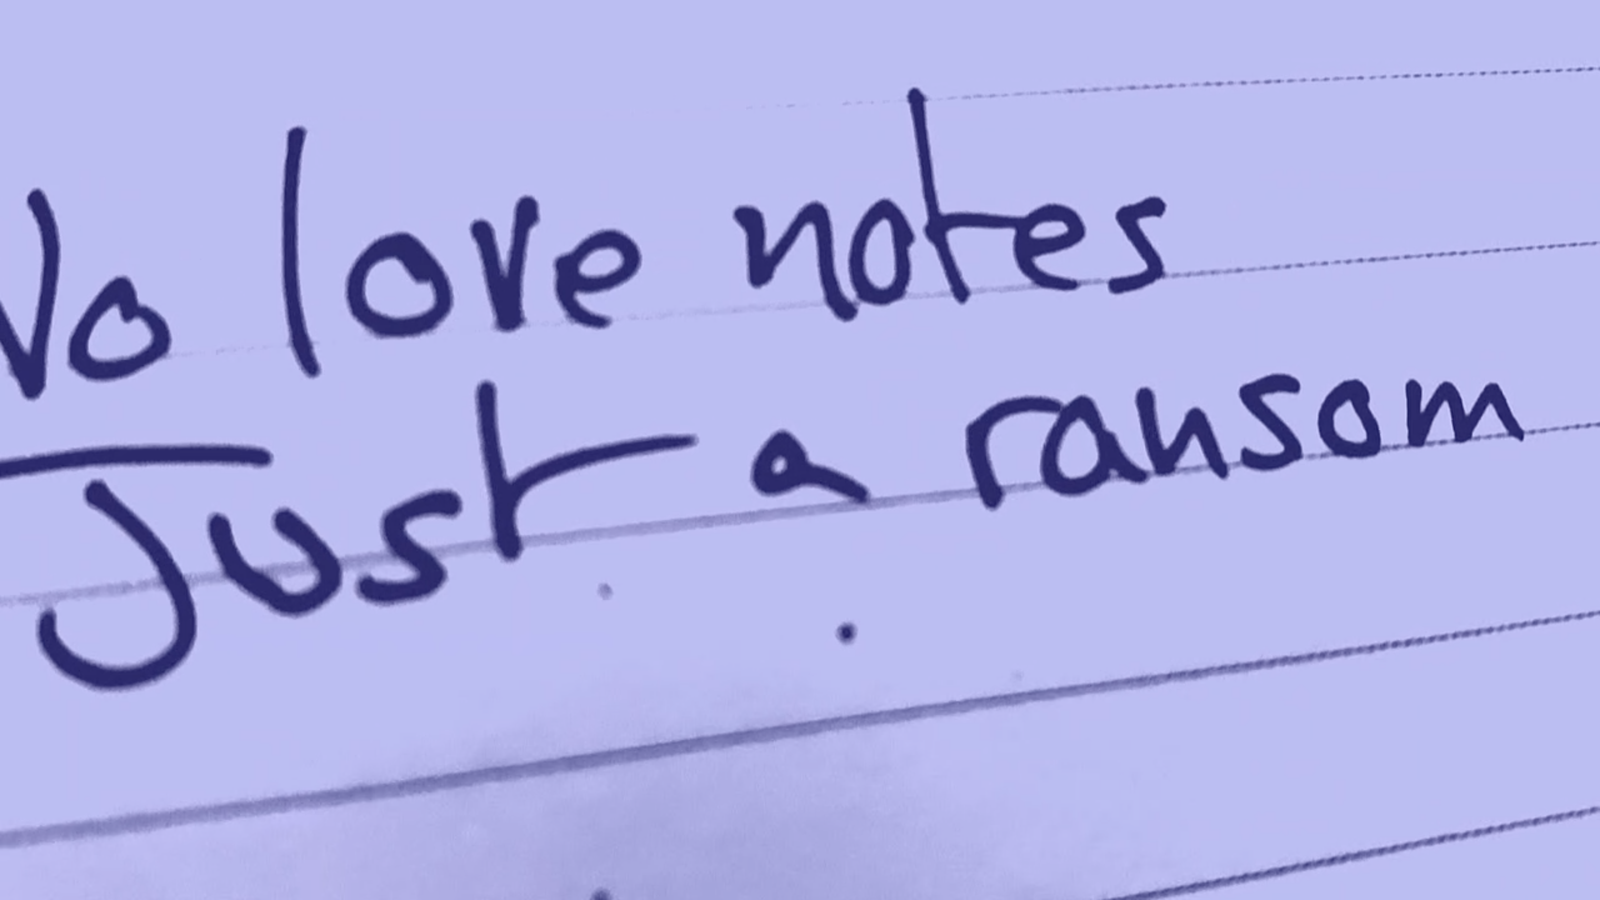 No love notes
Just a ransom